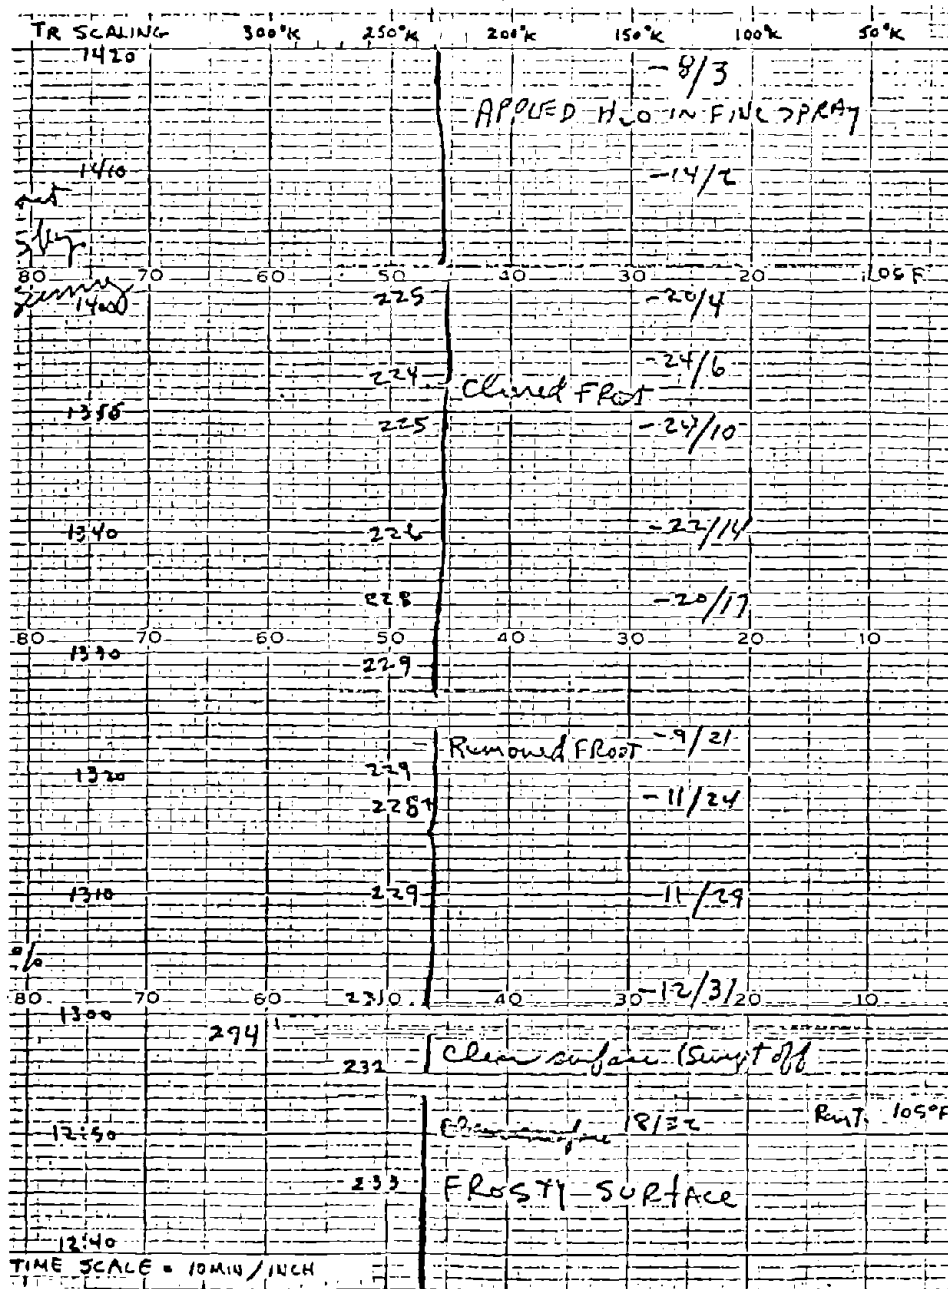 TR SCALING 300°K 250°K 200°K 150°K 100°K 50°K
1420 -8/3
APPLIED H2O IN FINE SPRAY
1410 -14/2
80 70 60 50 40 30 20 105F
1400 225 -20/4
-24/6
224 Cleared FRost
1350 225 -24/10
1340 226 -22/14
228 -20/17
80 70 60 50 40 30 20 10
1330 229
Removed FRost -9/21
1320 229
228+ -11/24
1310 229 11/29
%
80 70 60 2310 40 30 -12/31 20 10
1300
294
232 Clean surface (Swept off
12:50 18/32 105°F
233 FROSTY SURFACE
12:40
TIME SCALE = 10MIN/INCH